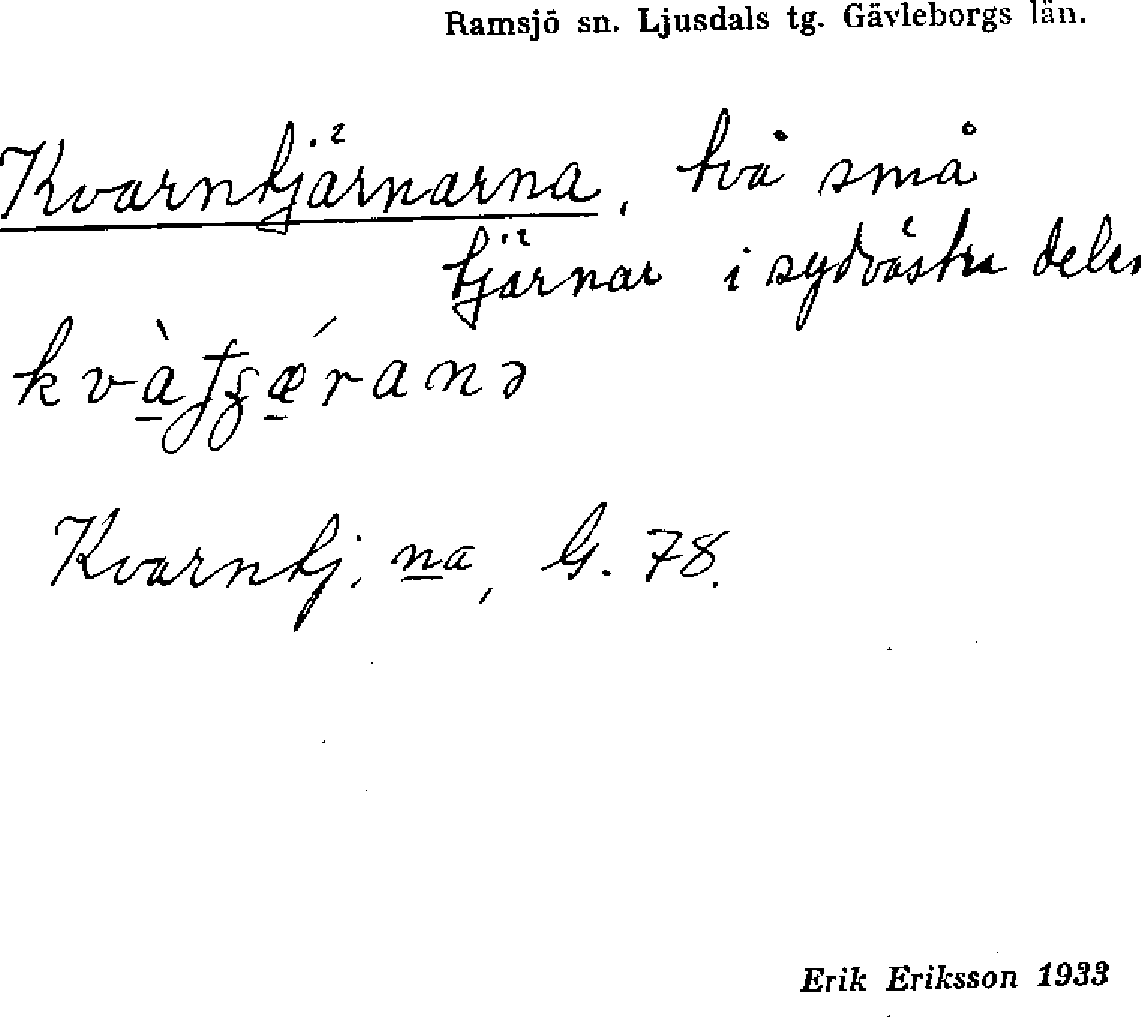 Ramsjö sn. Ljusdals tg. Gävleborgs län.
Kvarntjärnarna, två små
tjärnar i sydvästra delen
Kvarntj:na, G. 78.
Erik Eriksson 1933